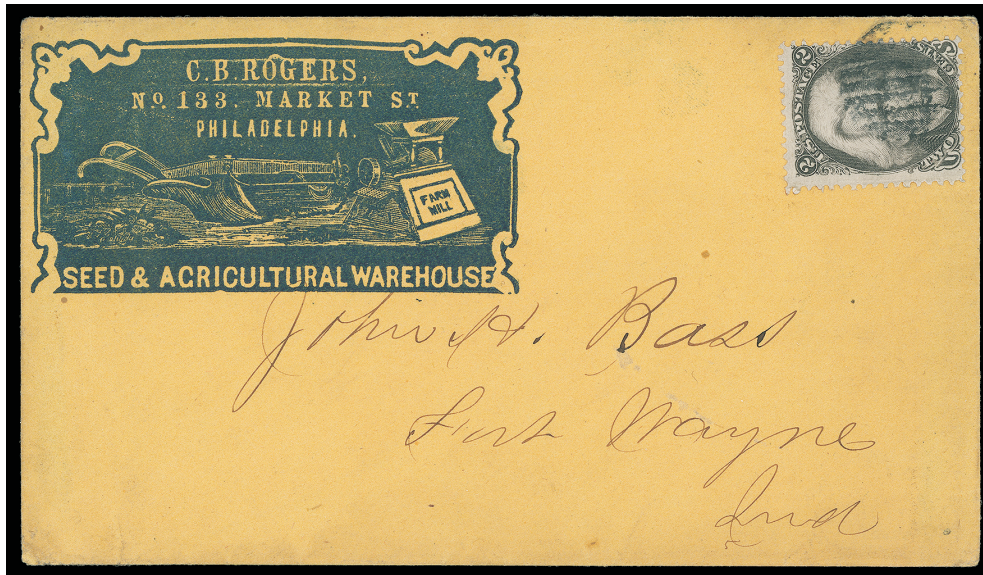 C.B. ROGERS,
No. 133. MARKET ST.
PHILADELPHIA.
FARM
MILL
SEED & AGRICULTURAL WAREHOUSE
U.S. POSTAGE
2
2
John H. Bass
Fort Wayne
Ind